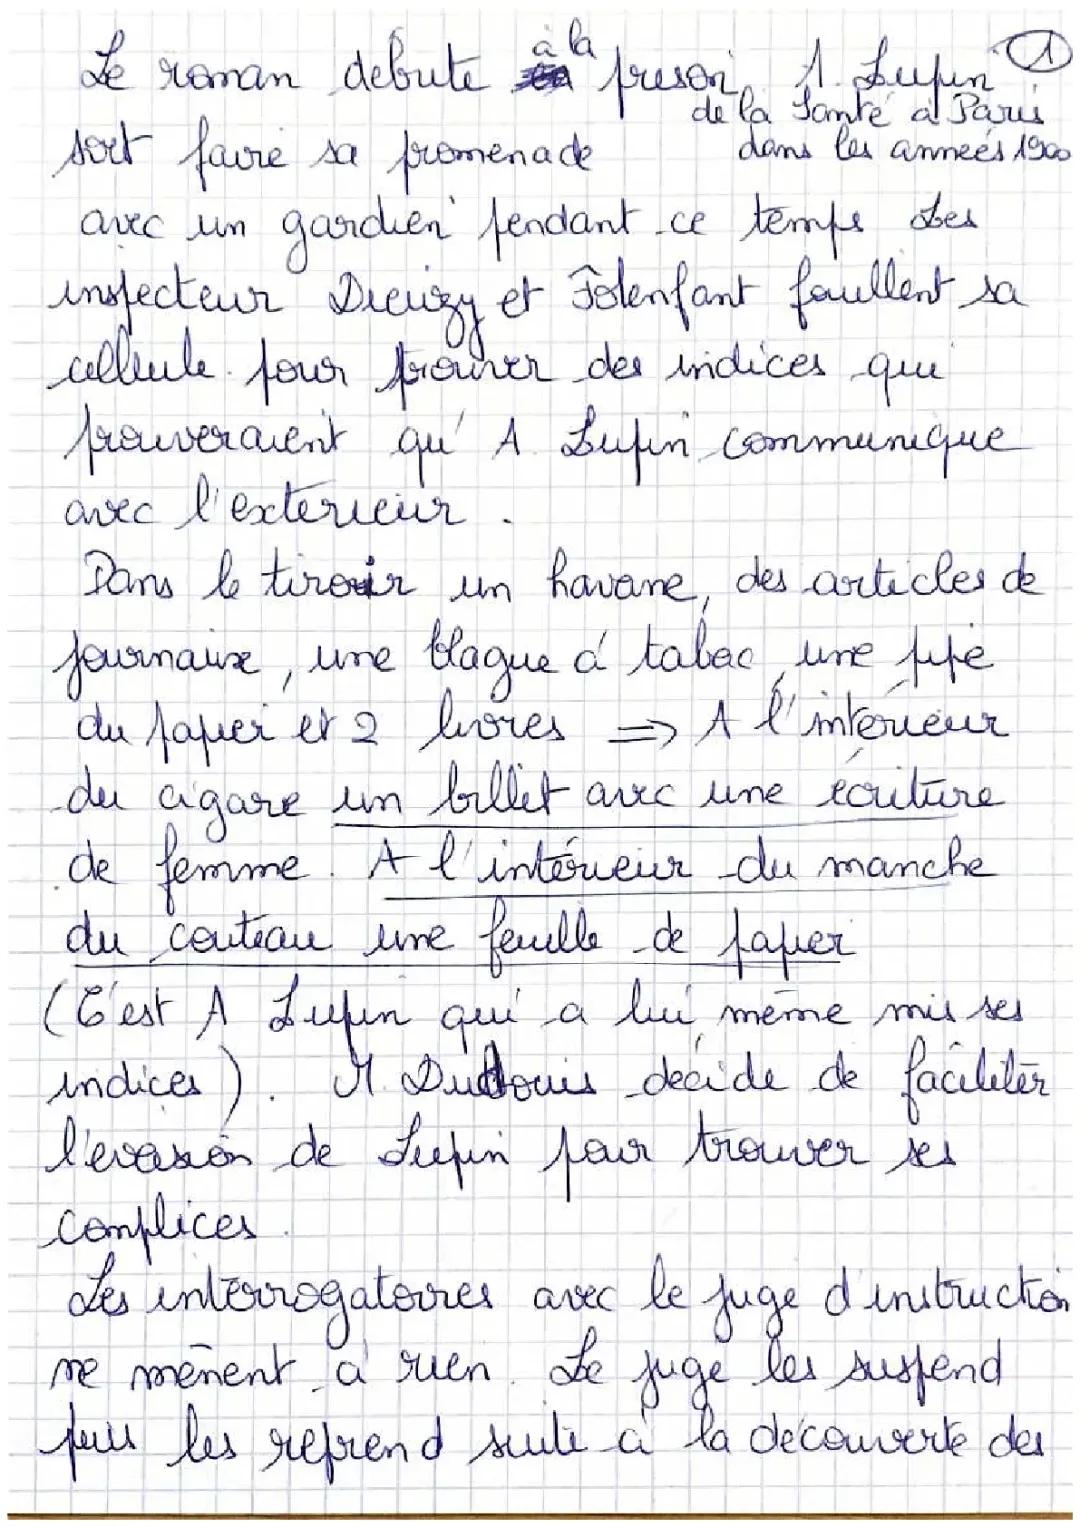 ①
Le roman débute à la prison, A. Lupin
de la Santé à Paris
sort faire sa promenade
dans les années 1900
avec un gardien pendant ce temps les
inspecteur Dieuzy et Folenfant fouillent sa
cellule pour trouver des indices qui
prouveraient qu'A Lupin communique
avec l'extérieur.
Dans le tiroir un havane, des articles de
journaux, une blague à tabac, une pipe
du papier et 2 livres ⇒ A l'intérieur
du cigare un billet avec une écriture
de femme. A l'intérieur du manche
du couteau une feuille de papier
(C'est A Lupin qui a lui même mis ses
indices). M. Dudouis décide de faciliter
l'evasion de Lupin pour trouver ses
complices.
Les interrogatoires avec le juge d'instruction
ne mènent à rien. Le juge les suspend
puis les reprend suite à la découverte des